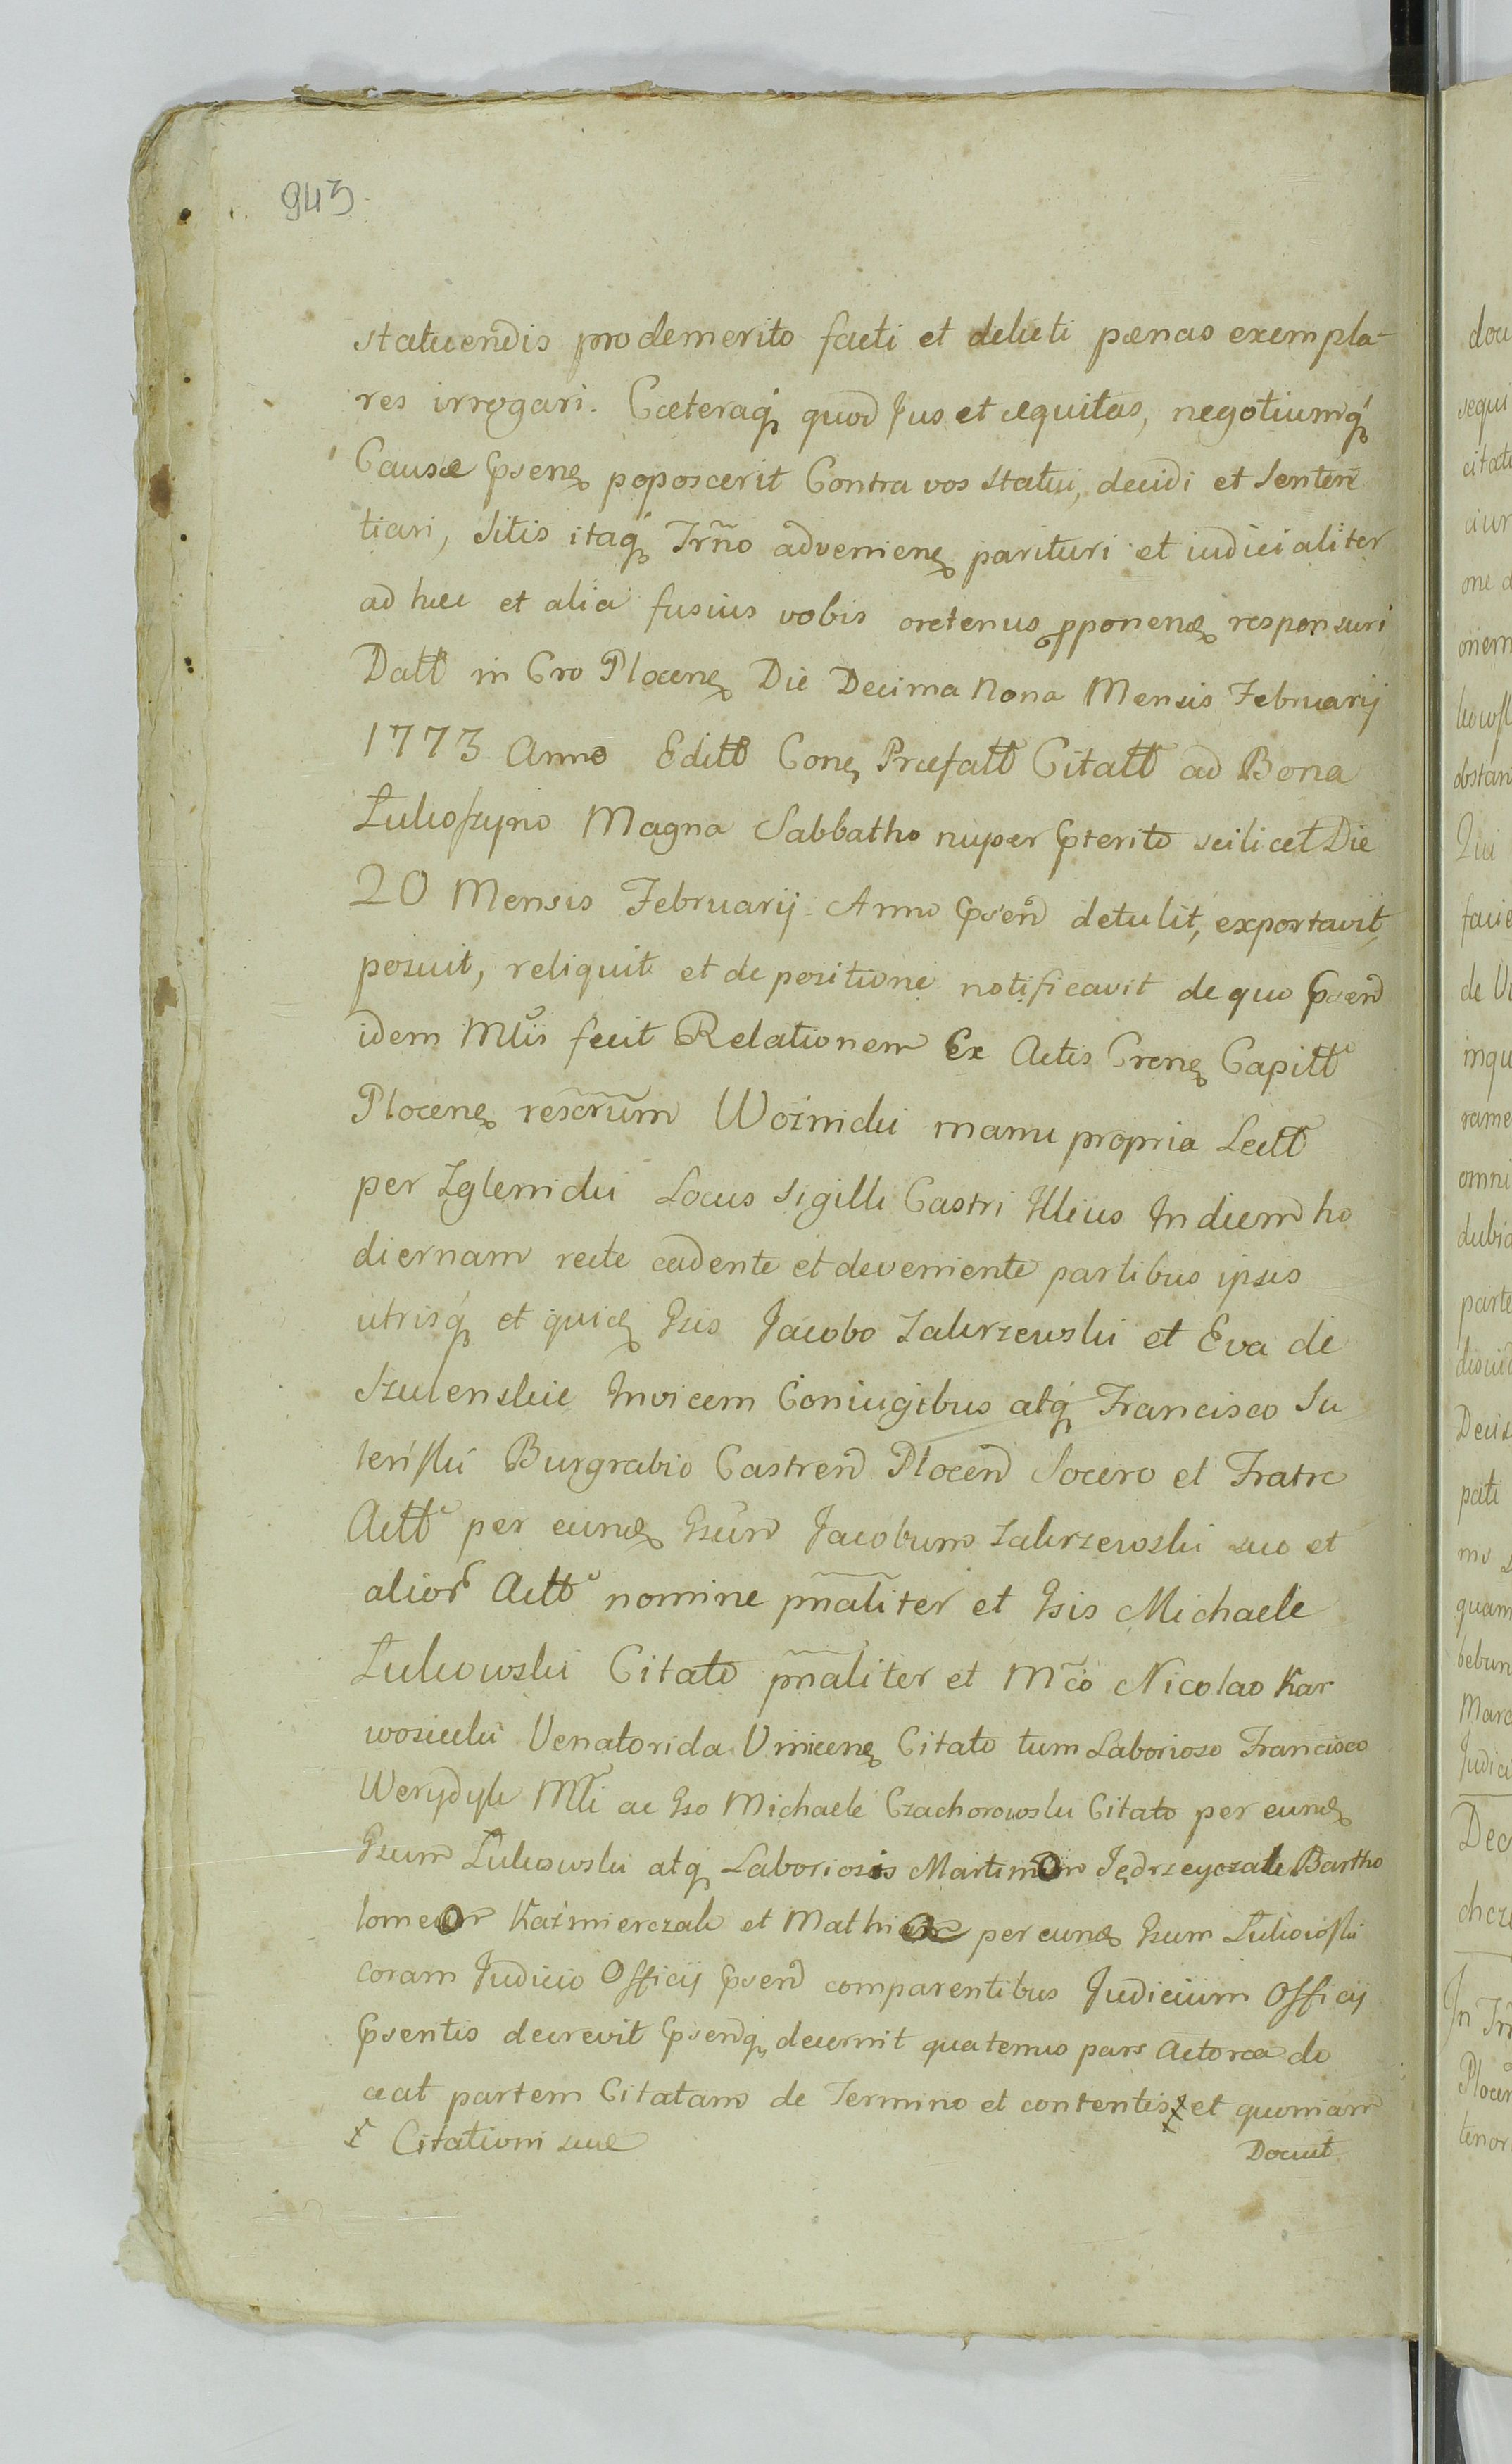 943
statuendis pro demerito facti et delicti pœnas exempla-
res irrogari. Cæteraq, quod Jus et æquitas, negotiumq,
Causæ Pnsenę poposcerit Contra vos statui, decidi et senten
tiari, sitis itaq, Trño advenienę parituri et iudicialiter
ad hæc et alia fusius vobis oretenus pponenđ responsuri
Datt in Cro Plocenę Die Decima Nona Mensis Februarij
1773 Anno Editt Conę Præfatt Citatt ad Bona
Łukoszyno Magna Sabbatho nuper Pterito scilicet Die
20 Mensis Februarij Anno Psenđ detulit, exportavit,
posuit, reliquit et de positione notificavit de quo Psenđ
idem Mtris fecit Relationem Ex Actis Crenę Capitt
Plocenę rescrum Woźnicki manu propria Lectt
per Zglenicki Locus Sigilli Castri Illius In diem ho
diernam recte cadente et deveniente partibus ipsis
utrisq, et quidę Gsis Jacobo Zakrzewski et Eva de
Szulenskie Invicem Coniugibus atq, Francisco Su
leński Burgrabio Castrenđ Plocenđ Socero et Fratre
Actt per eunđ Gsum Jacobum Zakrzewski suo et
alior Actt nomine pñaliter et Gsis Michaele
Łukowski Citato pñaliter et Mco Nicolao Kar
wosiecki Venatorida Vinicenę Citato tum Laborioso Francisco
Werydyk Mli ac Gso Michaele Czachorowski Citato per eunđ
Gsum Łukowski atq, Laboriosis Martinom Jędrzeyczak Bartho
lomeom Kaźmierczak et Mathia per eunđ Gsum Łukowski
coram Judicio Officij Psenđ comparentibus Judicium Officij
Psentis decrevit Psenđq, decernit quatenus pars Actorea do
ceat partem Citatam de Termino et contentis ‡ et quoniam
‡ Citationi suæ
Docuit